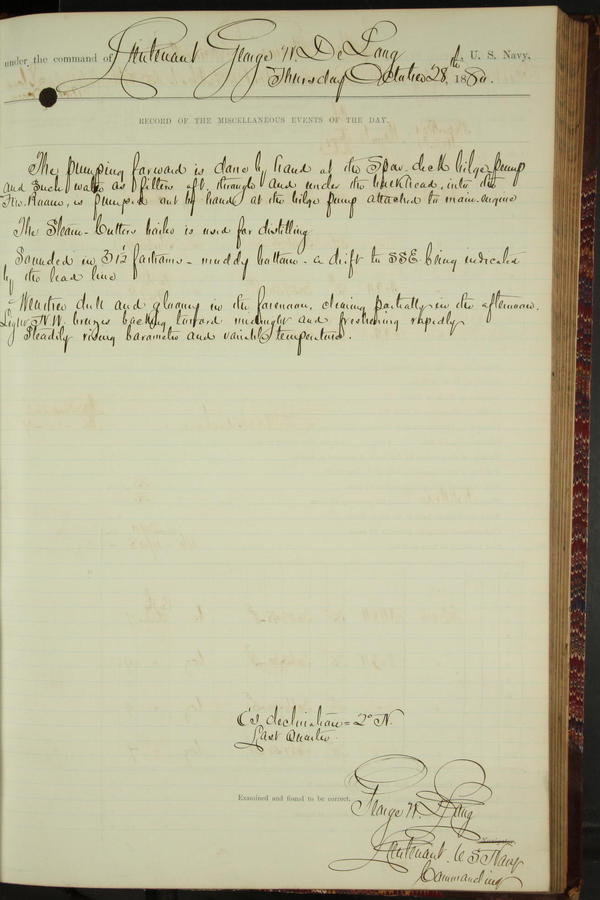 under the command of Lieutenant George W. De Long, U. S. Navy.
Thursday October 28th, 1880.
RECORD OF THE MISCELLANEOUS EVENTS OF THE DAY.
The pumping forward is done by hand at the Spar-deck bilge pump
and such water as filters aft through and under the bulkhead, into the
Fire Room, is pumped out by hand at the bilge pump attached to main engine
The Steam-Cutters boiler is used for distilling
Sounded in 31½ fathoms - muddy bottom - a drift to SSE being indicated
by the lead line
Weather dull and gloomy in the forenoon, clearing partially in the afternoon.
Light N.W. breezes backing toward midnight and freshening rapidly
Steadily rising barometer and variable temperature.
☾'s declination = 2° N.
Last Quarter.
Examined and found to be correct.
George W. De Long
Navigator
Lieutenant U S Navy
Commanding